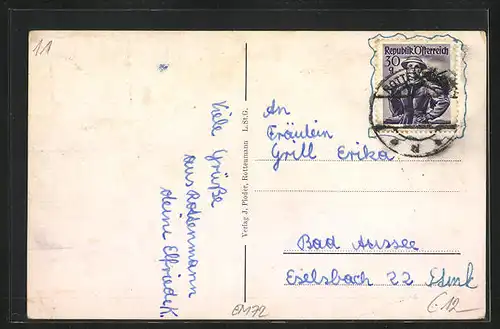 1.1
Republik Österreich
30
g
ROTTENMANN
An
Fräulein
Grill Erika
Bad Aussee
Eselsbach 22
Viele Grüße
aus Rottenmann
deine Elfriede K.
Verlag J. Pleder, Rottenmann L. St. G.
EM72
C12